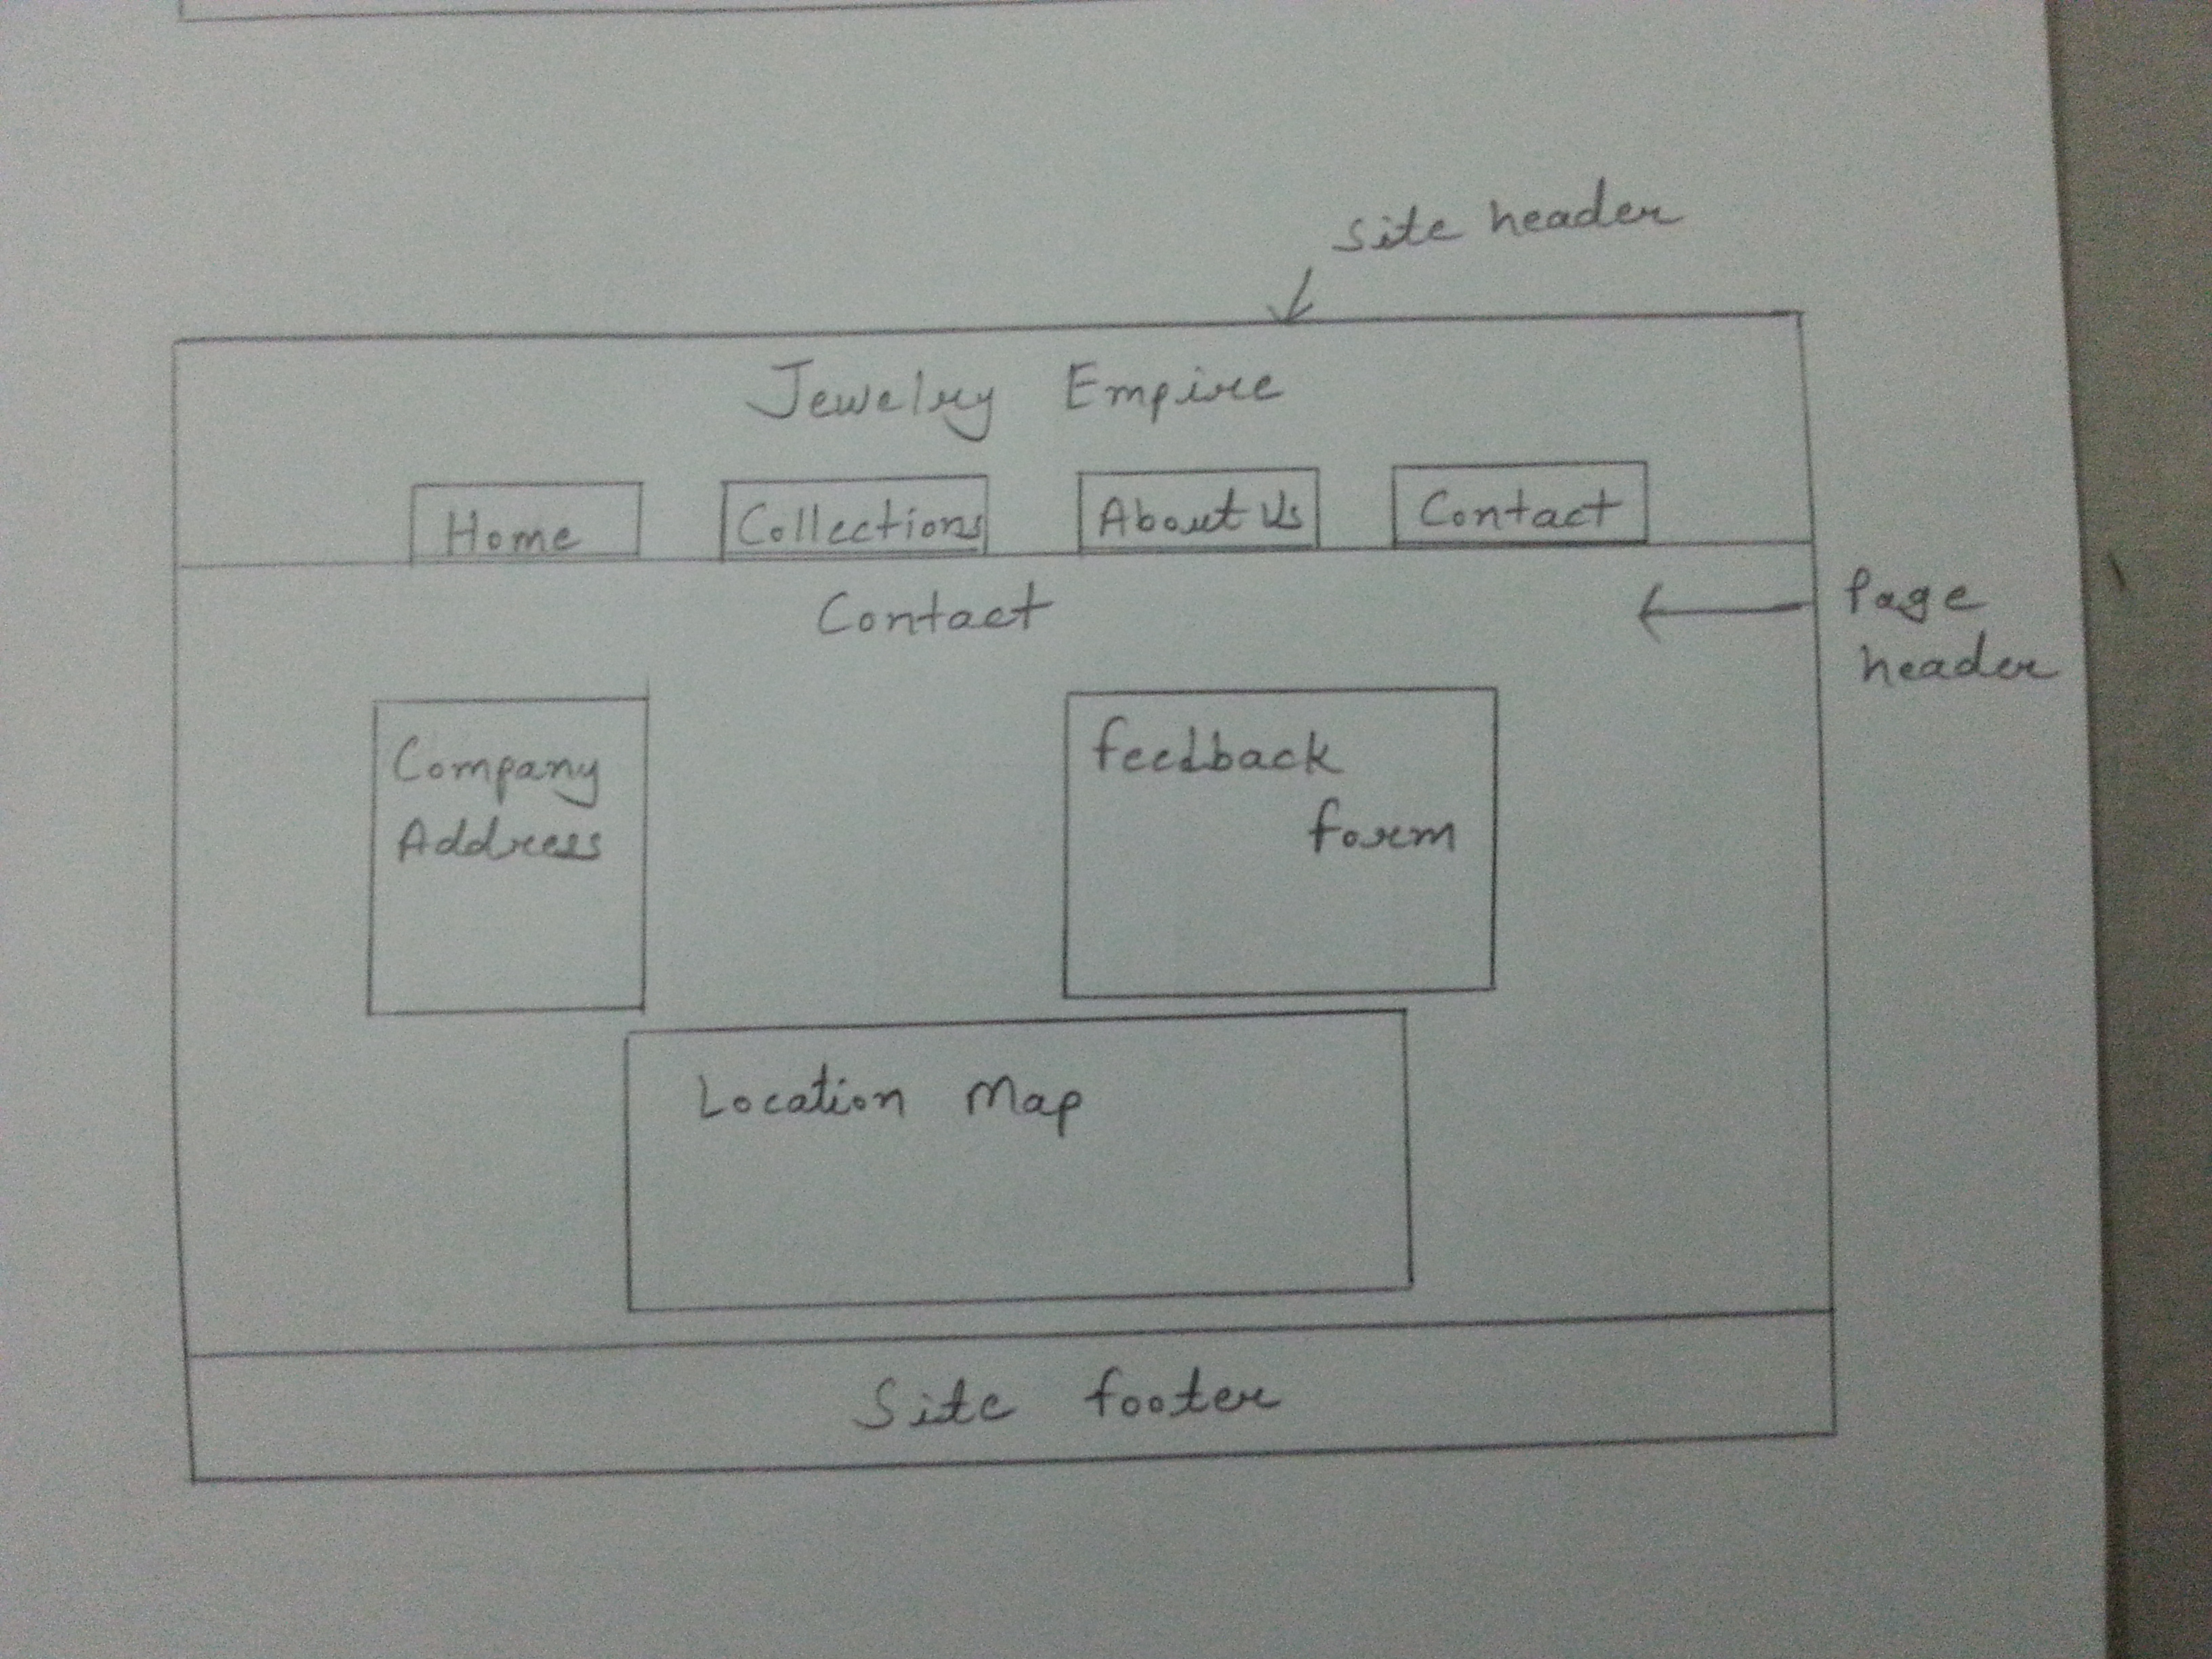 site header
Jewelry Empire
Home Collections About Us Contact
Contact
Page
header
Company
Address
feedback
form
Location Map
Site footer